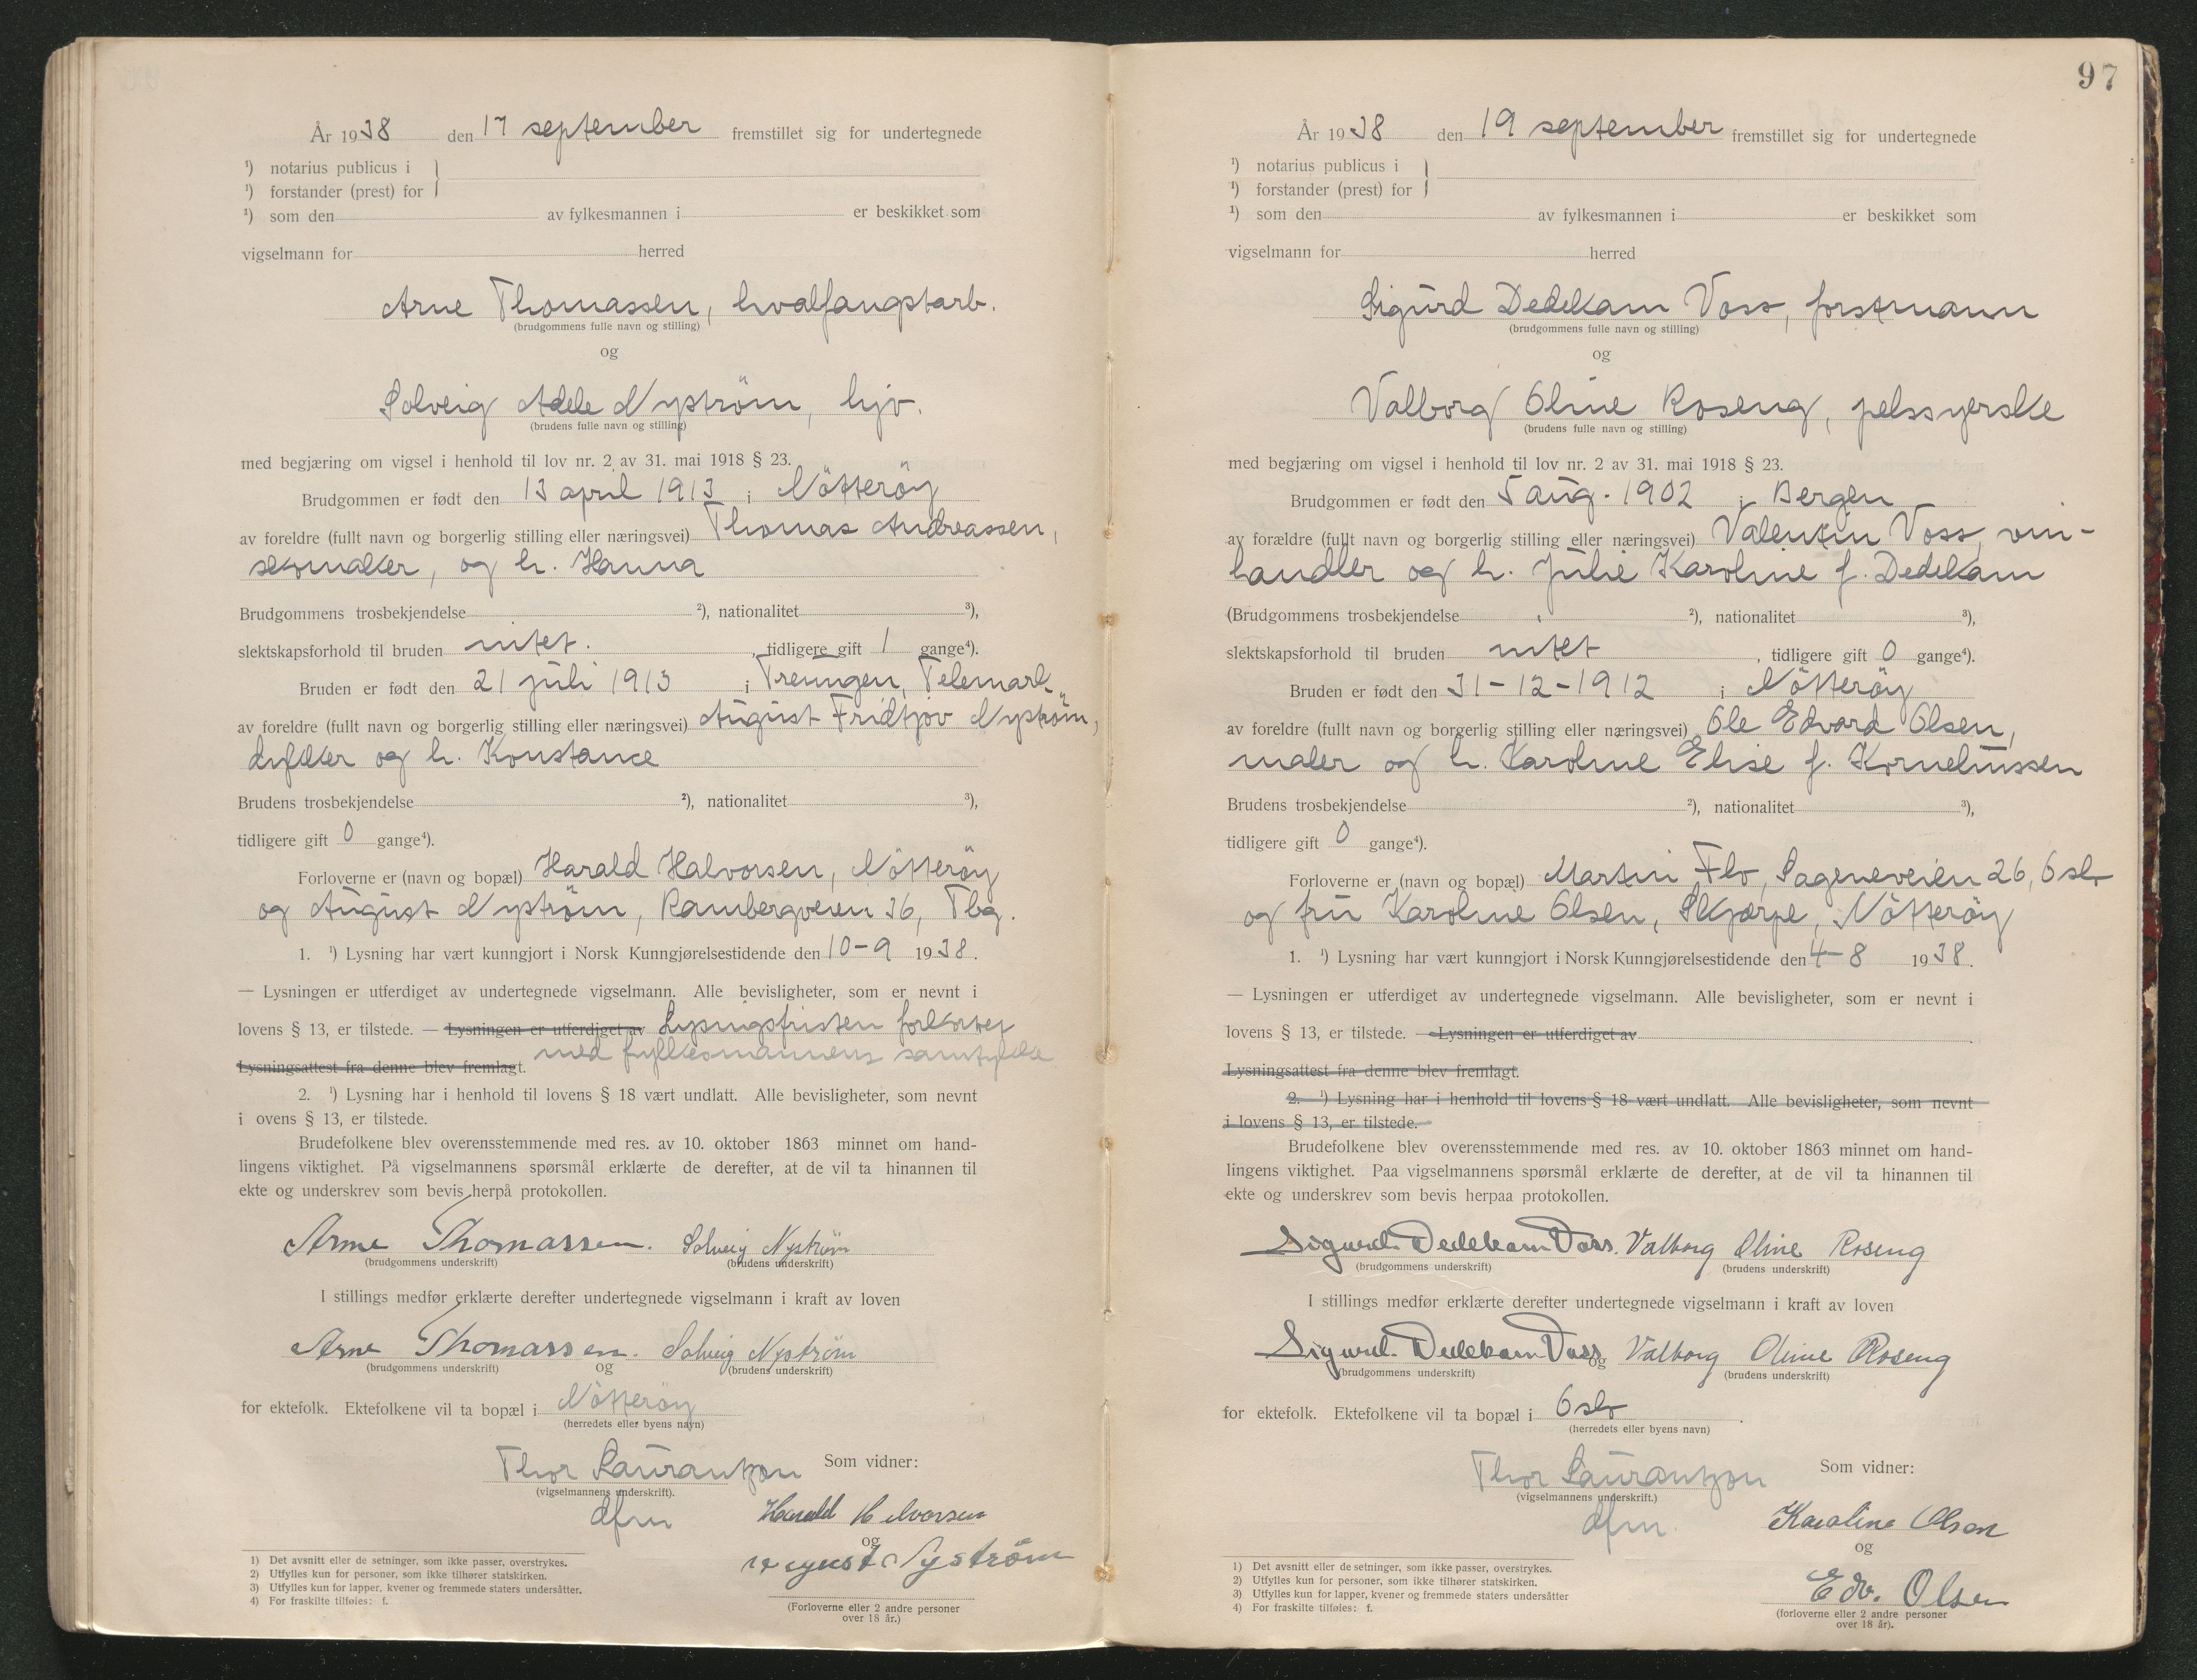 År 1938 den 17 september fremstillet sig for undertegnede
¹) notarius publicus i
¹) forstander (prest) for
¹) som den av fylkesmannen i er beskikket som
vigselmann for herred
Arne Thomassen, hvalfangstarb.
(brudgommens fulle navn og stilling)
og
Solveig Adele Nyström, hjv.
(brudens fulle navn og stilling)
med begjæring om vigsel i henhold til lov nr. 2 av 31. mai 1918 § 23.
Brudgommen er født den 13 april 1913 i Nötteröy
av foreldre (fullt navn og borgerlig stilling eller næringsvei) Thomas Andreassen,
skomaker, og h. Hanna
Brudgommens trosbekjendelse ²), nationalitet ³),
slektskapsforhold til bruden intet. , tidligere gift 1 gange⁴).
Bruden er født den 21 juli 1913 i Treungen, Telemark
av foreldre (fullt navn og borgerlig stilling eller næringsvei) August Fridtjov Nyström,
dykker og h. Konstance
Brudens trosbekjendelse ²), nationalitet ³),
tidligere gift 0 gange⁴).
Forloverne er (navn og bopæl) Harald Halvorsen, Nötteröy
og August Nyström, Rambergveien 36, Tbg.
1. ¹) Lysning har vært kunngjort i Norsk Kunngjørelsestidende den 10-9 1938.
— Lysningen er utferdiget av undertegnede vigselmann. Alle bevisligheter, som er nevnt i
lovens § 13, er tilstede. — Lysningen er utferdiget av Lysningsfristen forkortet
med fylkesmannens samtykke
Lysningsattest fra denne blev fremlagt.
2. ¹) Lysning har i henhold til lovens § 18 vært undlatt. Alle bevisligheter, som nevnt
i ovens § 13, er tilstede.
Brudefolkene blev overensstemmende med res. av 10. oktober 1863 minnet om hand-
lingens viktighet. På vigselmannens spørsmål erklærte de derefter, at de vil ta hinannen til
ekte og underskrev som bevis herpå protokollen.
Arne Thomassen. Solveig Nyström
(brudgommens underskrift) (brudens underskrift)
I stillings medfør erklærte derefter undertegnede vigselmann i kraft av loven
Arne Thomassen. Solveig Nyström
(brudgommens underskrift) og (brudens underskrift)
for ektefolk. Ektefolkene vil ta bopæl i Nötteröy
(herredets eller byens navn)
Thor Laurantzon Som vidner:
(vigselmannens underskrift).
dfm
Harald Halvorsen
og
August Nyström
(Forloverne eller 2 andre personer
over 18 år.)
1) Det avsnitt eller de setninger, som ikke passer, overstrykes.
2) Utfylles kun for personer, som ikke tilhører statskirken.
3) Utfylles kun for lapper, kvener og fremmede staters undersåtter.
4) For fraskilte tilføies: f.
97
År 1938 den 19 september fremstillet sig for undertegnede
¹) notarius publicus i
¹) forstander (prest) for
¹) som den av fylkesmannen i er beskikket som
vigselmann for herred
Sigurd Dedekam Voss, forstmann
(brudgommens fulle navn og stilling)
og
Valborg Oline Roseng, pelssyerske
(brudens fulle navn og stilling)
med begjæring om vigsel i henhold til lov nr. 2 av 31. mai 1918 § 23.
Brudgommen er født den 5 aug. 1902 i Bergen
av forældre (fullt navn og borgerlig stilling eller næringsvei) Valentin Voss, vin-
handler og h. Julie Karoline f. Dedekam
(Brudgommens trosbekjendelse ²), nationalitet ³),
slektskapsforhold til bruden intet , tidligere gift 0 gange⁴).
Bruden er født den 31-12-1912 i Nötteröy
av foreldre (fullt navn og borgerlig stilling eller næringsvei) Ole Edvard Olsen,
maler og h. Karoline Elise f. Korneliussen
Brudens trosbekjendelse ²), nationalitet ³),
tidligere gift 0 gange⁴).
Forloverne er (navn og bopæl) Martin Flo, Sageneveien 26, Oslo
og fru Karoline Olsen, Skjærpe, Nötteröy
1. ¹) Lysning har vært kunngjort i Norsk Kunngjørelsestidende den 4-8 1938.
— Lysningen er utferdiget av undertegnede vigselmann. Alle bevisligheter, som er nevnt i
lovens § 13, er tilstede. — Lysningen er utferdiget av
Lysningsattest fra denne blev fremlagt.
2. ¹) Lysning har i henhold til lovens § 18 vært undlatt. Alle bevisligheter, som nevnt
i lovens § 13, er tilstede.
Brudefolkene blev overensstemmende med res. av 10. oktober 1863 minnet om hand-
lingens viktighet. Paa vigselmannens spørsmål erklærte de derefter, at de vil ta hinannen til
ekte og underskrev som bevis herpaa protokollen.
Sigurd Dedekam Voss. Valborg Oline Roseng
(brudgommens underskrift) (brudens underskrift)
I stillings medfør erklærte derefter undertegnede vigselmann i kraft av loven
Sigurd Dedekam Voss og Valborg Oline Roseng
(brudgommens underskrift) (brudens underskrift)
for ektefolk. Ektefolkene vil ta bopæl i Oslo .
(herredets eller byens navn)
Thor Laurantzon Som vidner:
(vigselmannens underskrift.)
dfm.
Karoline Olsen
og
Edv. Olsen
(forloverne eller 2 andre personer
over 18 år).
1) Det avsnitt eller de setninger, som ikke passer, overstrykes.
2) Utfylles kun for personer, som ikke tilhører statskirken.
3) Utfylles kun for lapper, kvener og fremmede staters undersåtter
4) For fraskilte tilføies: f.